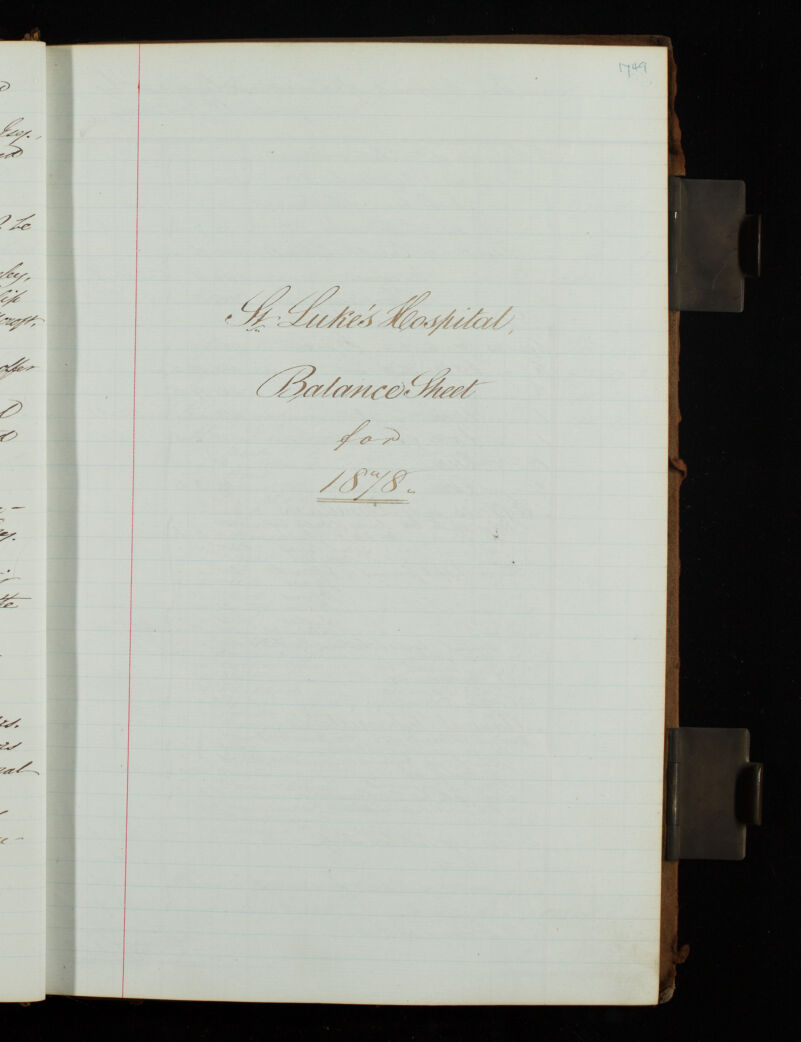 1749
Esq.,
St. Luke's Hospital,
Balance Sheet
for
1878.